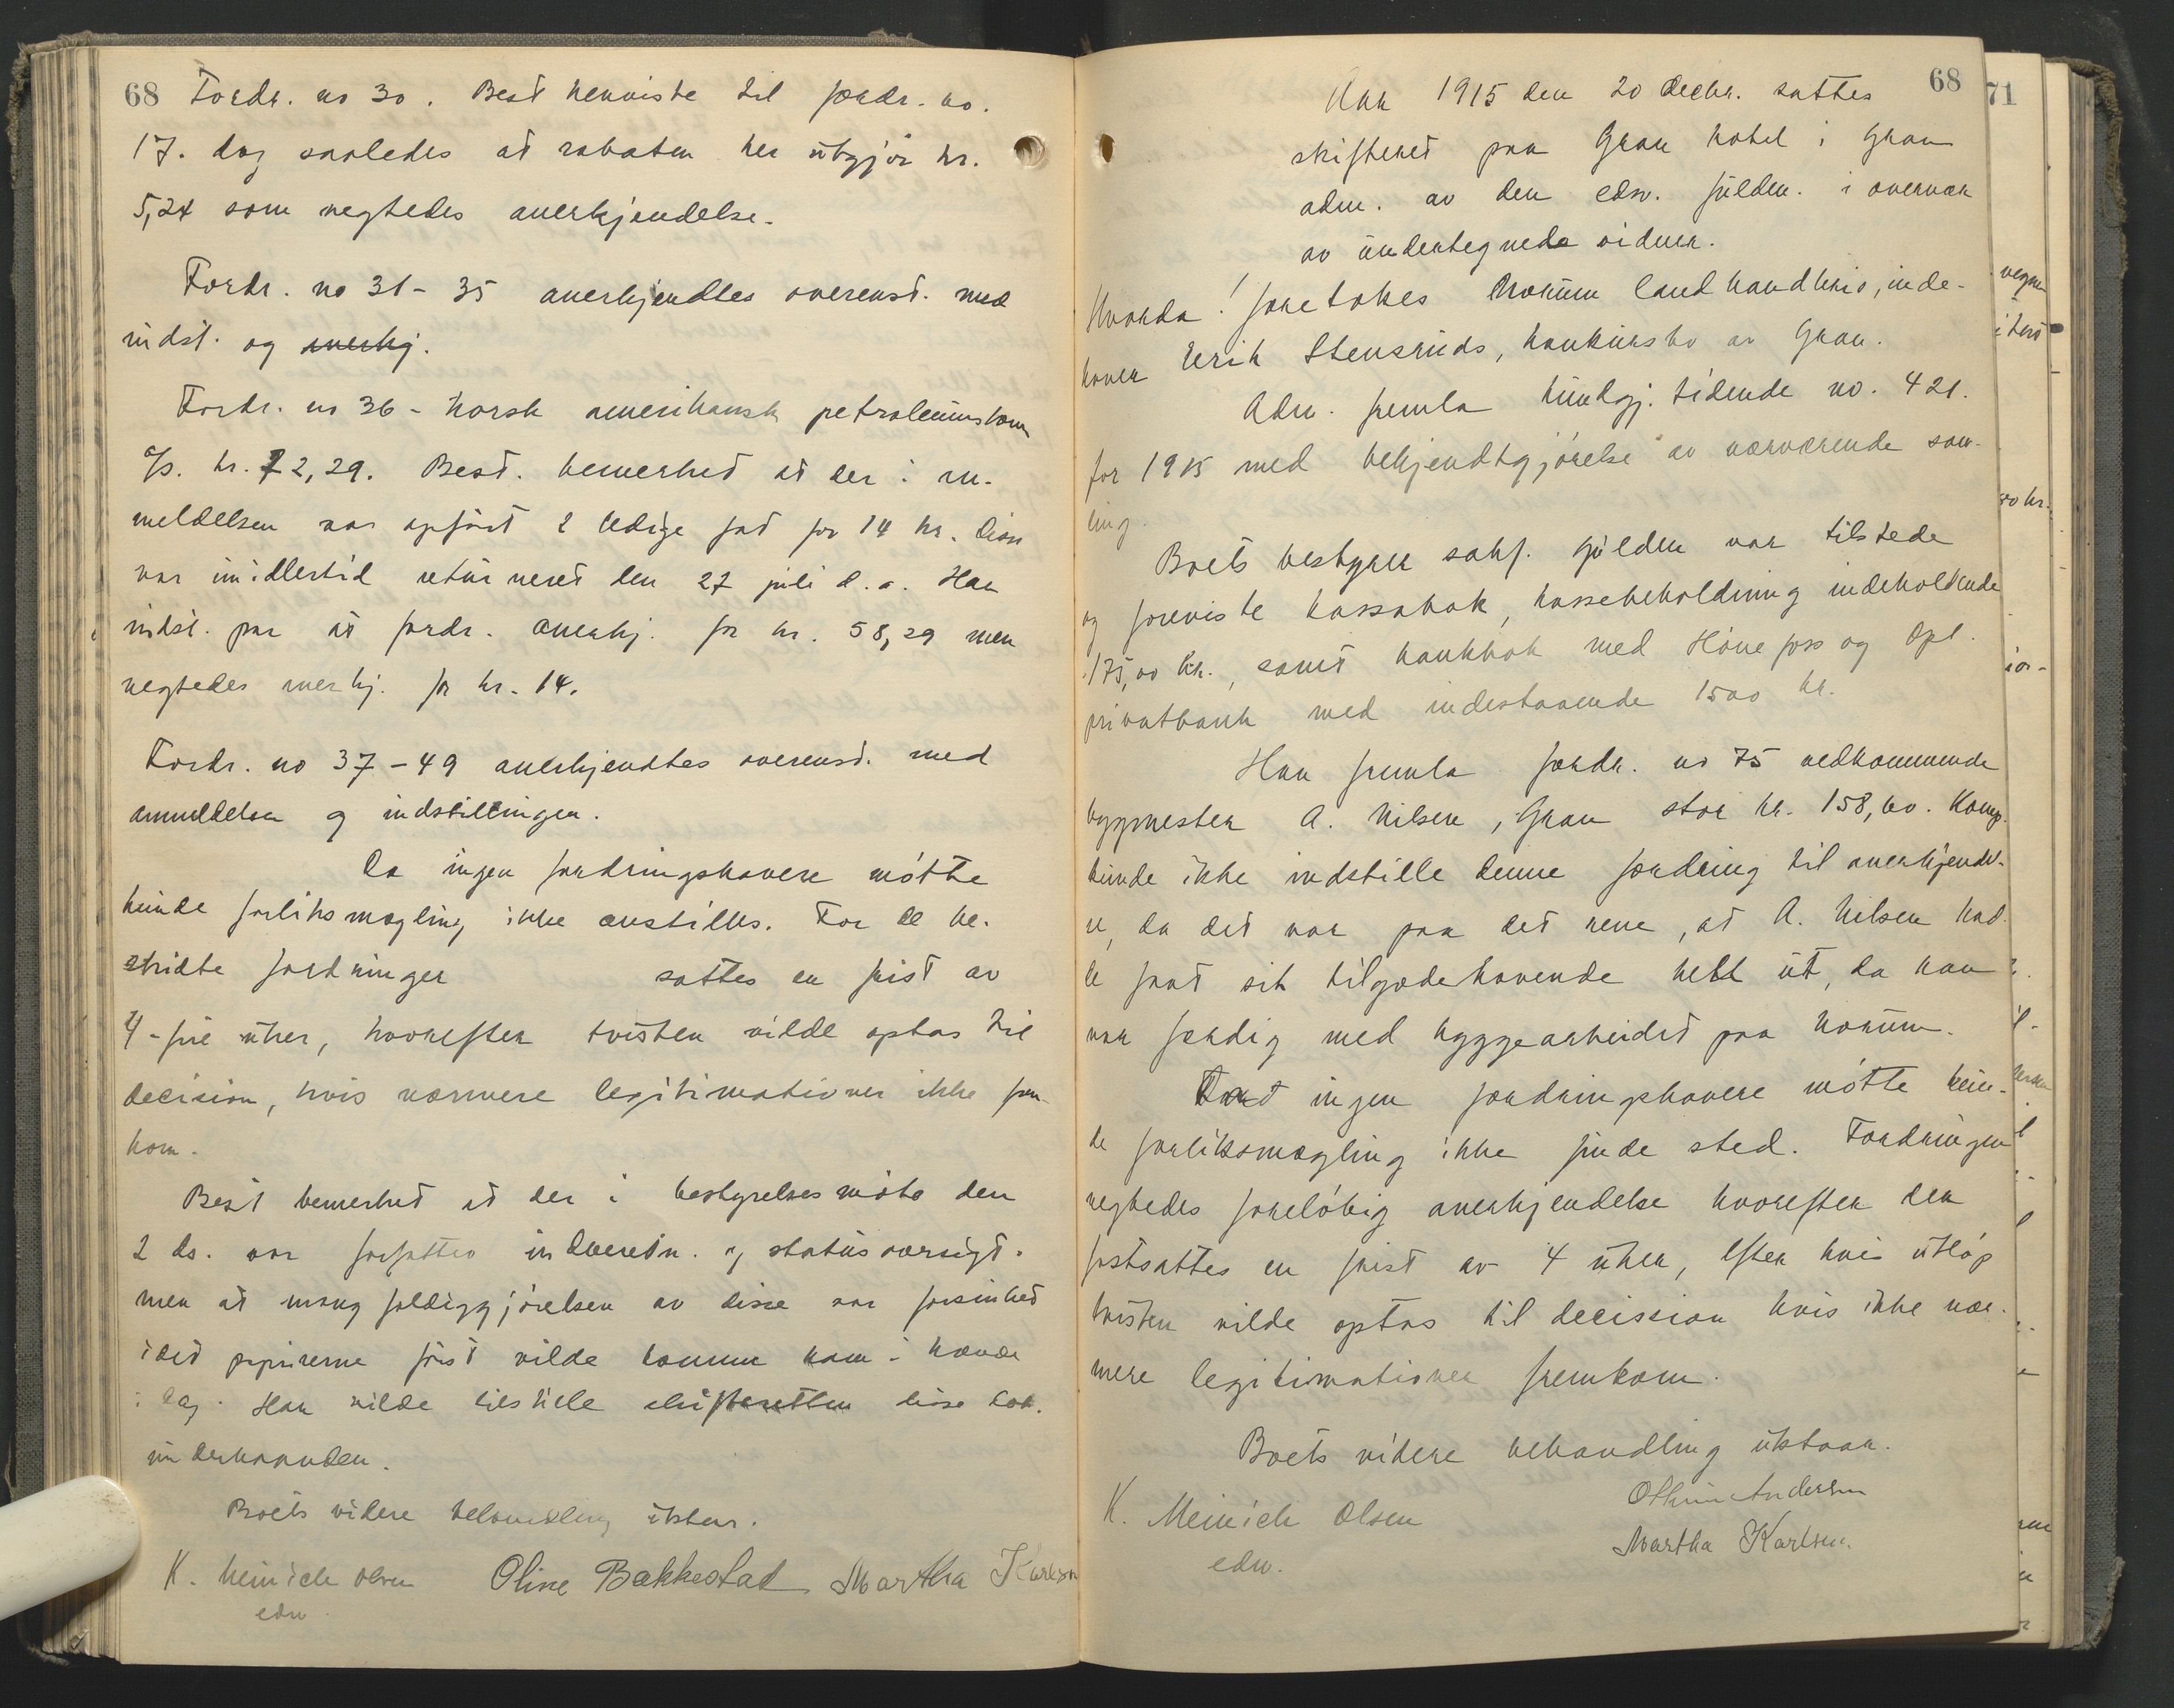 68 Fordr. no 30. Best henviste til fordr. no.
17. dog saaledes at rabaten her utgjør kr.
5,24 som negtedes anerkjendelse.
Fordr. no 31-35 anerkjendtes overenst. med
indst. og anerkj.
Fordr. no 36 - Norsk amerikansk petroleumskom
A/S. kr. 72,29. Best. bemerket at der i an-
meldelsen var opført 2 ledige fat for 14 kr. Disse
var imidlertid returneret den 27 juli d.a. Han
indst. paa at fordr. anerkj. for kr. 58,29 men
negtedes anerkj. for kr. 14.
Fordr. no 37-49 anerkjendtes overenst. med
anmeldelsen og indstillingen.
Da ingen fordringshavere møtte
kunde forliksmegling ikke anstilles. For de be-
stridte fordringer sattes en frist av
4-fire uker, hvorefter tvisten vilde optas til
decision, hvis nærmere legitimationer ikke frem-
kom.
Best bemerket at der i bestyrelsesmøte den
2 ds. var forfattet indberetn. og statusoversigt.
men at mangfoldiggjørelsen av disse var forsinket
idet papirerne først vilde komme ham i hænde
i dag. Han vilde tilstille skifteretten disse dok.
underhaanden.
Boets videre behandling utstaar.
K. Meinich Olsen Oline Bakkestad Martha Karlsen
edsv.
68
71
Aar 1915 den 20 decbr. sattes
skifteret paa Gran hotel i Gran
adm. av den edsv. fuldm. i overvær
av undertegnede vidner.
Hvorda! foretokes Horum landhandleri, inde-
haver Erik Stensruds, konkursbo av Gran.
Adm. fremla kundgj. tidende no. 421.
for 1915 med bekjendtgjørelse av nærværende sam-
ling.
Boets bestyrer sakf. Gulden var tilstede
og foreviste kassabok, kassebeholdning indeholdende
175,00 kr., samt bankbok med Hønefoss og Opl.
privatbank med indestaaende 1500 kr.
Han fremla fordr. no 75 vedkommende
bygmester A. Nilsen, Gran stor kr. 158,60. Komp.
kunde ikke indstille denne fordring til anerkjendel-
se, da det var paa det rene, at A. Nilsen had-
de faat sit tilgodehavende helt ut, da han
var færdig med byggearbeidet paa Horum.
Da ingen fordringshavere møtte kun-
de forliksmægling ikke finde sted. Fordringen
negtedes foreløbig anerkjendelse hvorefter der
fastsattes en frist av 4 uker, efter hvis utløp
tvisten vilde optas til decission hvis ikke nær-
mere legitimationer fremkom.
Boets videre behandling utstaar.
K. Meinich Olsen
edsv.
Andersen
Martha Karlsen.